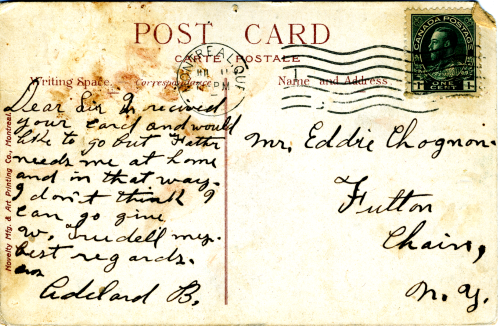 POST CARD
CARTE POSTALE
Writing Space.
Correspondance
Name and Address
MONTREAL QUE
PM
CANADA POSTAGE
1 CENT 1
Novelty Mfg. & Art Printing Co., Montreal
Dear Sir I recived
your card and would
like to go but Fathr
needs me at home
and in that way.
I don't think I
can go give
W. Trudell my.
best regards.
Adelard B.
Mr. Eddie Chognon.
Fulton
Chain,
N. Y.